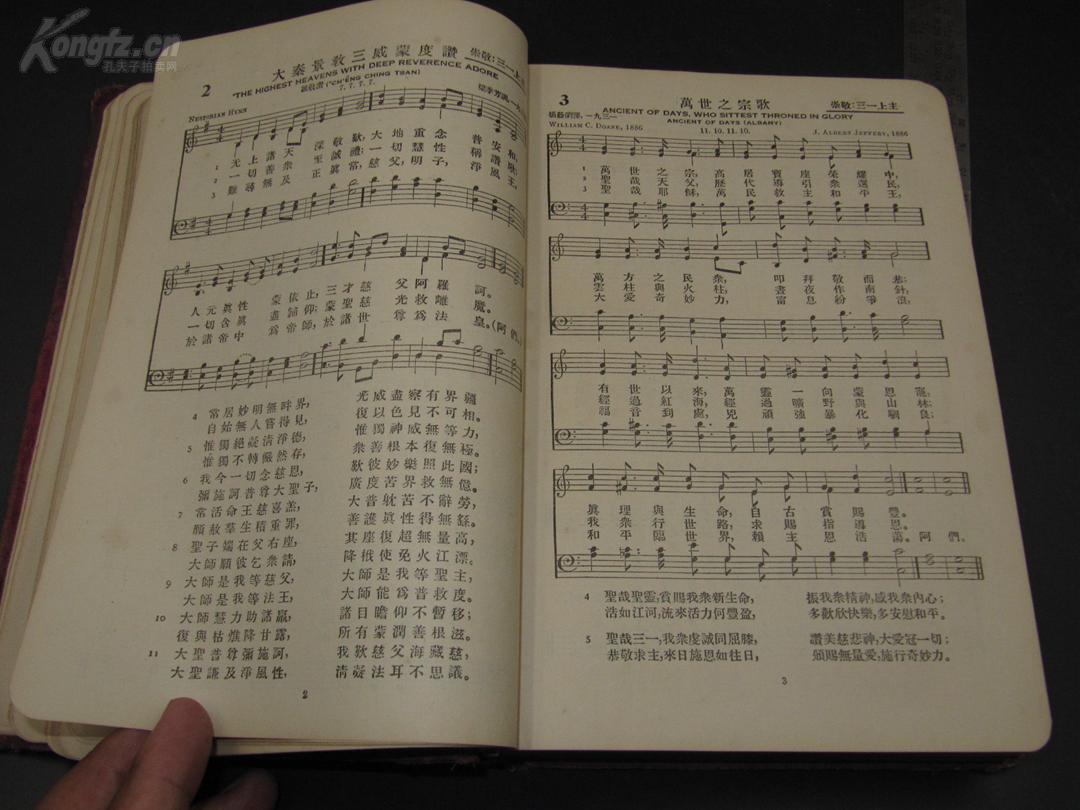 Kongfz.cn
孔夫子拍卖网
2
大秦景教三威蒙度讚
崇敬:三一上主
"THE HIGHEST HEAVENS WITH DEEP REVERENCE ADORE
7.7.7.7.
NESTORIAN HYMN
1 無上諸天深敬歎,大地重念普安和,
2 一切善衆至誠禮,一切慧性稱讚歌,
3 難尋無及正真常,慈父明子淨風王,
人元真性蒙依止,三才慈父阿羅訶。
一切含真盡歸仰,蒙聖慈光救離魔。
於諸帝中爲帝師,於諸世尊爲法皇。(阿們。)
4 常居妙明無畔界, 光威盡察有界疆。
自始無人嘗得見, 復以色見不可相。
5 惟獨絕凝清淨德, 惟獨神威無等力,
惟獨不轉儼然存, 衆善根本復無極。
6 我今一切念慈恩, 歎彼妙樂照此國;
彌施訶普尊大聖子, 廣度苦界救無億。
7 常活命王慈喜羔, 大普耽苦不辭勞,
願赦羣生積重罪, 善護真性得無繇。
8 聖子端在父右座, 其座復超無量高,
大師願彼乞衆請, 降栰使免火江漂。
9 大師是我等慈父, 大師是我等聖主,
大師是我等法王, 大師能爲普救度。
10 大師慧力助諸羸, 諸目瞻仰不暫移;
復與枯燋降甘露, 所有蒙潤善根滋。
11 大聖普尊彌施訶, 我歎慈父海藏慈,
大聖謙及淨風性, 清凝法耳不思議。
2
3
萬世之宗歌
崇敬:三一上主
ANCIENT OF DAYS, WHO SITTEST THRONED IN GLORY
ANCIENT OF DAYS (ALBANY)
11. 10. 11. 10.
WILLIAM C. DOANE, 1886
J. ALBERT JEFFERY, 1886
1 萬世之宗,高居寶座榮耀中,
2 聖哉天父,歷代導引衆選民,
3 聖哉耶穌,萬民救主和平王,
萬方之民衆,叩拜敬而恭;
雲柱與火柱,晝夜作南針;
大愛奇妙力,富息紛爭浪;
有世以來,萬靈一向蒙恩寵,
經過紅海,經過曠野與山林;
福音到處,兇頑強暴化馴良;
真與生命,自古賞賜豐。
我衆行路,求賜指導恩。
和平臨世界,賴主恩浩蕩。阿們。
4 聖哉聖靈,賞賜我衆新生命, 振我衆精神,感我衆內心;
活如江河,流來活力何豐盈, 多歡欣快樂,多安慰和平。
5 聖哉三一,我衆虔誠同屈膝, 讚美慈悲神,大愛冠一切;
恭敬求主,來日施恩如往日, 頒賜無量愛,施行奇妙力。
3